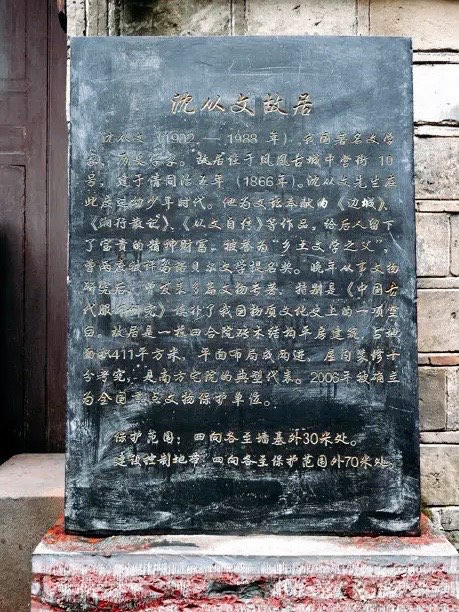 沈从文故居
沈从文（1902 — 1988 年），我国著名文学
家、历史学家。故居位于凤凰古城中营街 10
号，建于清同治五年（1866年）。沈从文先生在
此度过少年时代。他为文坛奉献的《边城》、
《湘行散记》、《从文自传》等作品，给后人留下
了宝贵的精神财富，被誉为“乡土文学之父”，
曾两度被评为诺贝尔文学提名奖。晚年从事文物
研究后，多篇文物专著，特别是《中国古
代服饰研究》填补了我国物质文化史上的一项空
白。故居是一栋四合院砖木结构平房建筑，占地
面积411平方米，平面布局成两进，屋内装修十
分考究，是南方宅院的典型代表。2006年被确立
为全国重点文物保护单位。
保护范围：四向各至墙基外30米处。
建设控制地带：四向各至保护范围外70米处